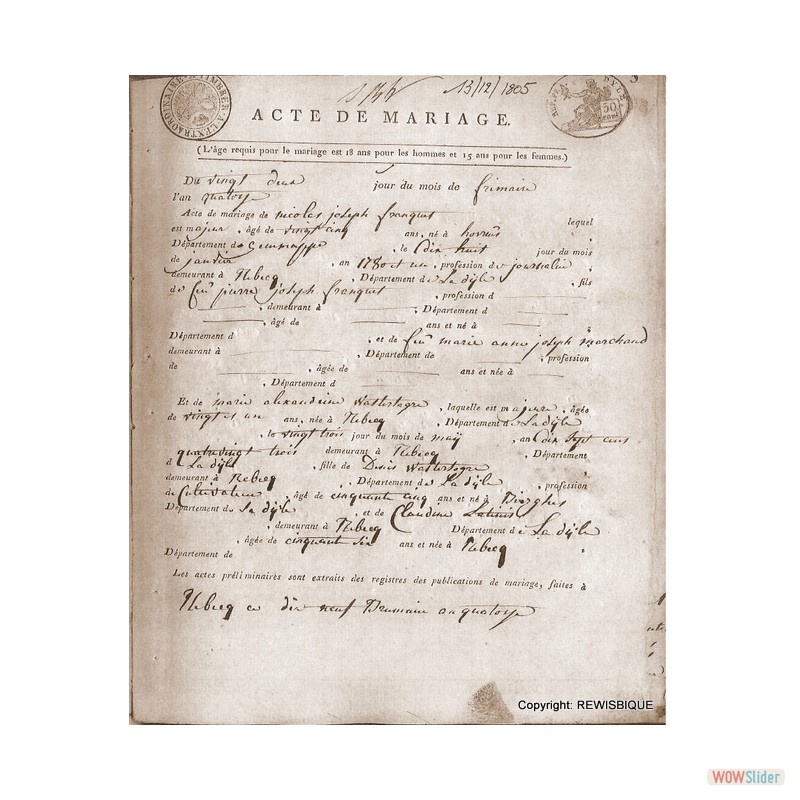 13/12/1805
EXTRAORDINAIRE
ACTE DE MARIAGE.
(L'âge requis pour le mariage est 18 ans pour les hommes et 15 ans pour les femmes.)
Du vingt deux jour du mois de frimaire
l'an quatorze
Acte de mariage de nicolas joseph franquet lequel
est majeur, âgé de vingt cinq ans, né à
Département de gemmappe, le dix huit jour du mois
de janvier, an 1780 et un, profession de journalier
demeurant à Rebecq, Département de La dÿle, fils
de feu pierre joseph franquet, profession d
, demeurant à, Département d
, âgé de ans et né à
Département d, et de feu marie anne joseph marchand
demeurant à, Département de, profession
de, âgée de ans et née à
, Département d
Et de marie alexandrine, laquelle est majeure, âgée
de vingt et un ans, née à Rebecq, Département de La dÿle
, le vingt trois jour du mois de maÿ, an dix sept cens
quatrevingt trois demeurant à Rebecq, Département
d La dÿle, fille de Denis
demeurant à Rebecq, Département de La dÿle, profession
de Cultivateur, âgé de cinquante cinq ans et né à
Département de La dÿle, et de Claudine
, demeurant à Rebecq Département de La dÿle
, âgée de cinquante six ans et née à Rebecq
Département de
Les actes préliminaires sont extraits des registres des publications de mariage, faites à
Rebecq ce dix neuf Brumaire an quatorze
Copyright: REWISBIQUE
WOWSlider